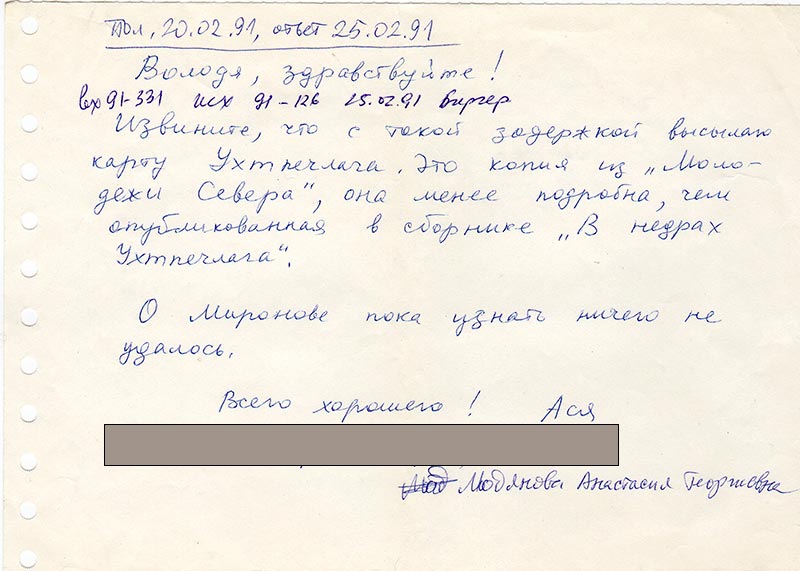 Пол. 20.02.91, ответ 25.02.91
Володя, здравствуйте!
вх 91-331 исх 91-126 25.02.91 Виргер
Извините, что с такой задержкой высылаю
карту Ухтпечлага. Это копия из „Моло-
дежи Севера", она менее подробна, чем
опубликованная в сборнике „В недрах
Ухтпечлага".
О Миронове пока узнать ничего не
удалось.
Всего хорошего! Ася
Модянова Анастасия Георгиевна